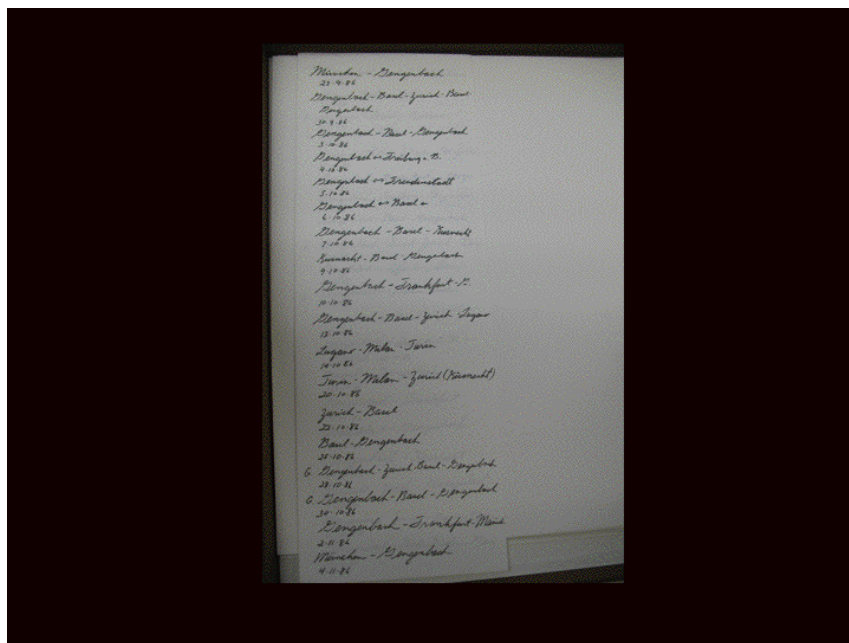 München - Gengenbach
23.9.86
Gengenbach - Basel - Zurich - Basel
Gengenbach
30.9.86
Gengenbach - Basel - Gengenbach
3.10.86
Gengenbach Freiburg
4.10.86
Gengenbach Freudenstadt
5.10.86
Gengenbach Basel
6.10.86
Gengenbach - Basel - Küsnacht
7.10.86
Küsnacht - Basel - Gengenbach
9.10.86
Gengenbach - Frankfurt - G.
10.10.86
Gengenbach - Basel - Zurich - Lugano
13.10.86
Lugano - Milan - Turin
Turin - Milan - Zurich (Küsnacht)
20.10.86
Zurich - Basel
Basel - Gengenbach
25.10.86
G. Gengenbach - Zurich Basel - Gengenbach
28.10.86
G. Gengenbach - Basel - Gengenbach
30.10.86
Gengenbach - Frankfurt -
2.11.86
München - Gengenbach
4.11.86